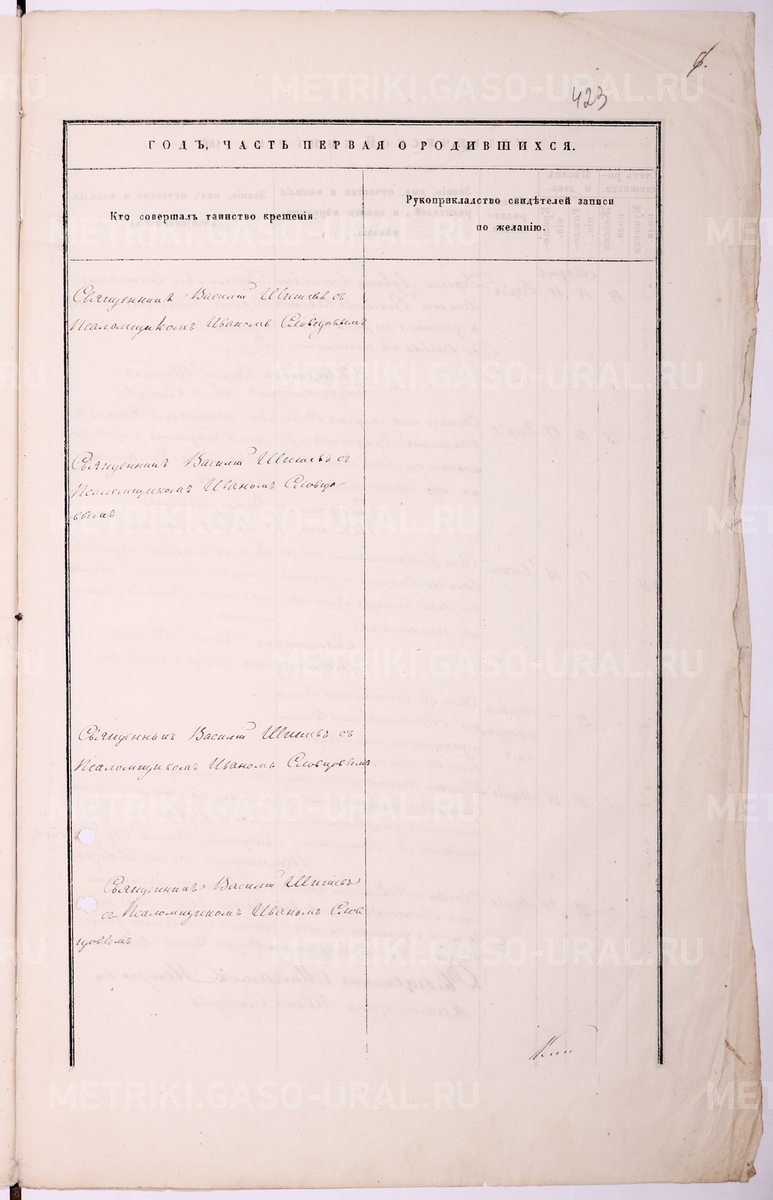 6.
423
ГОДЪ, ЧАСТЬ ПЕРВАЯ О РОДИВШИХСЯ.
Кто совершалъ таинство крещенія.
Рукоприкладство свидѣтелей записи
по желанію.
Священникъ Василій с
Псаломщикомъ Иваномъ Словцовымъ
Священникъ Василій с
Псаломщикомъ Иваномъ Словцо-
вымъ
Священникъ Василій с
Псаломщикомъ Иваномъ Словцовымъ
Священникъ Василій
с Псаломщикомъ Иваномъ Слов
цовымъ
METRIKI.GASO-URAL.RU